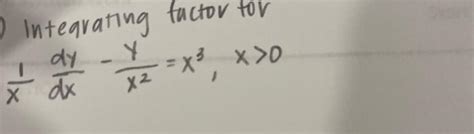 ) Integrating factor for
1/x dy/dx - y/x² = x³, x>0